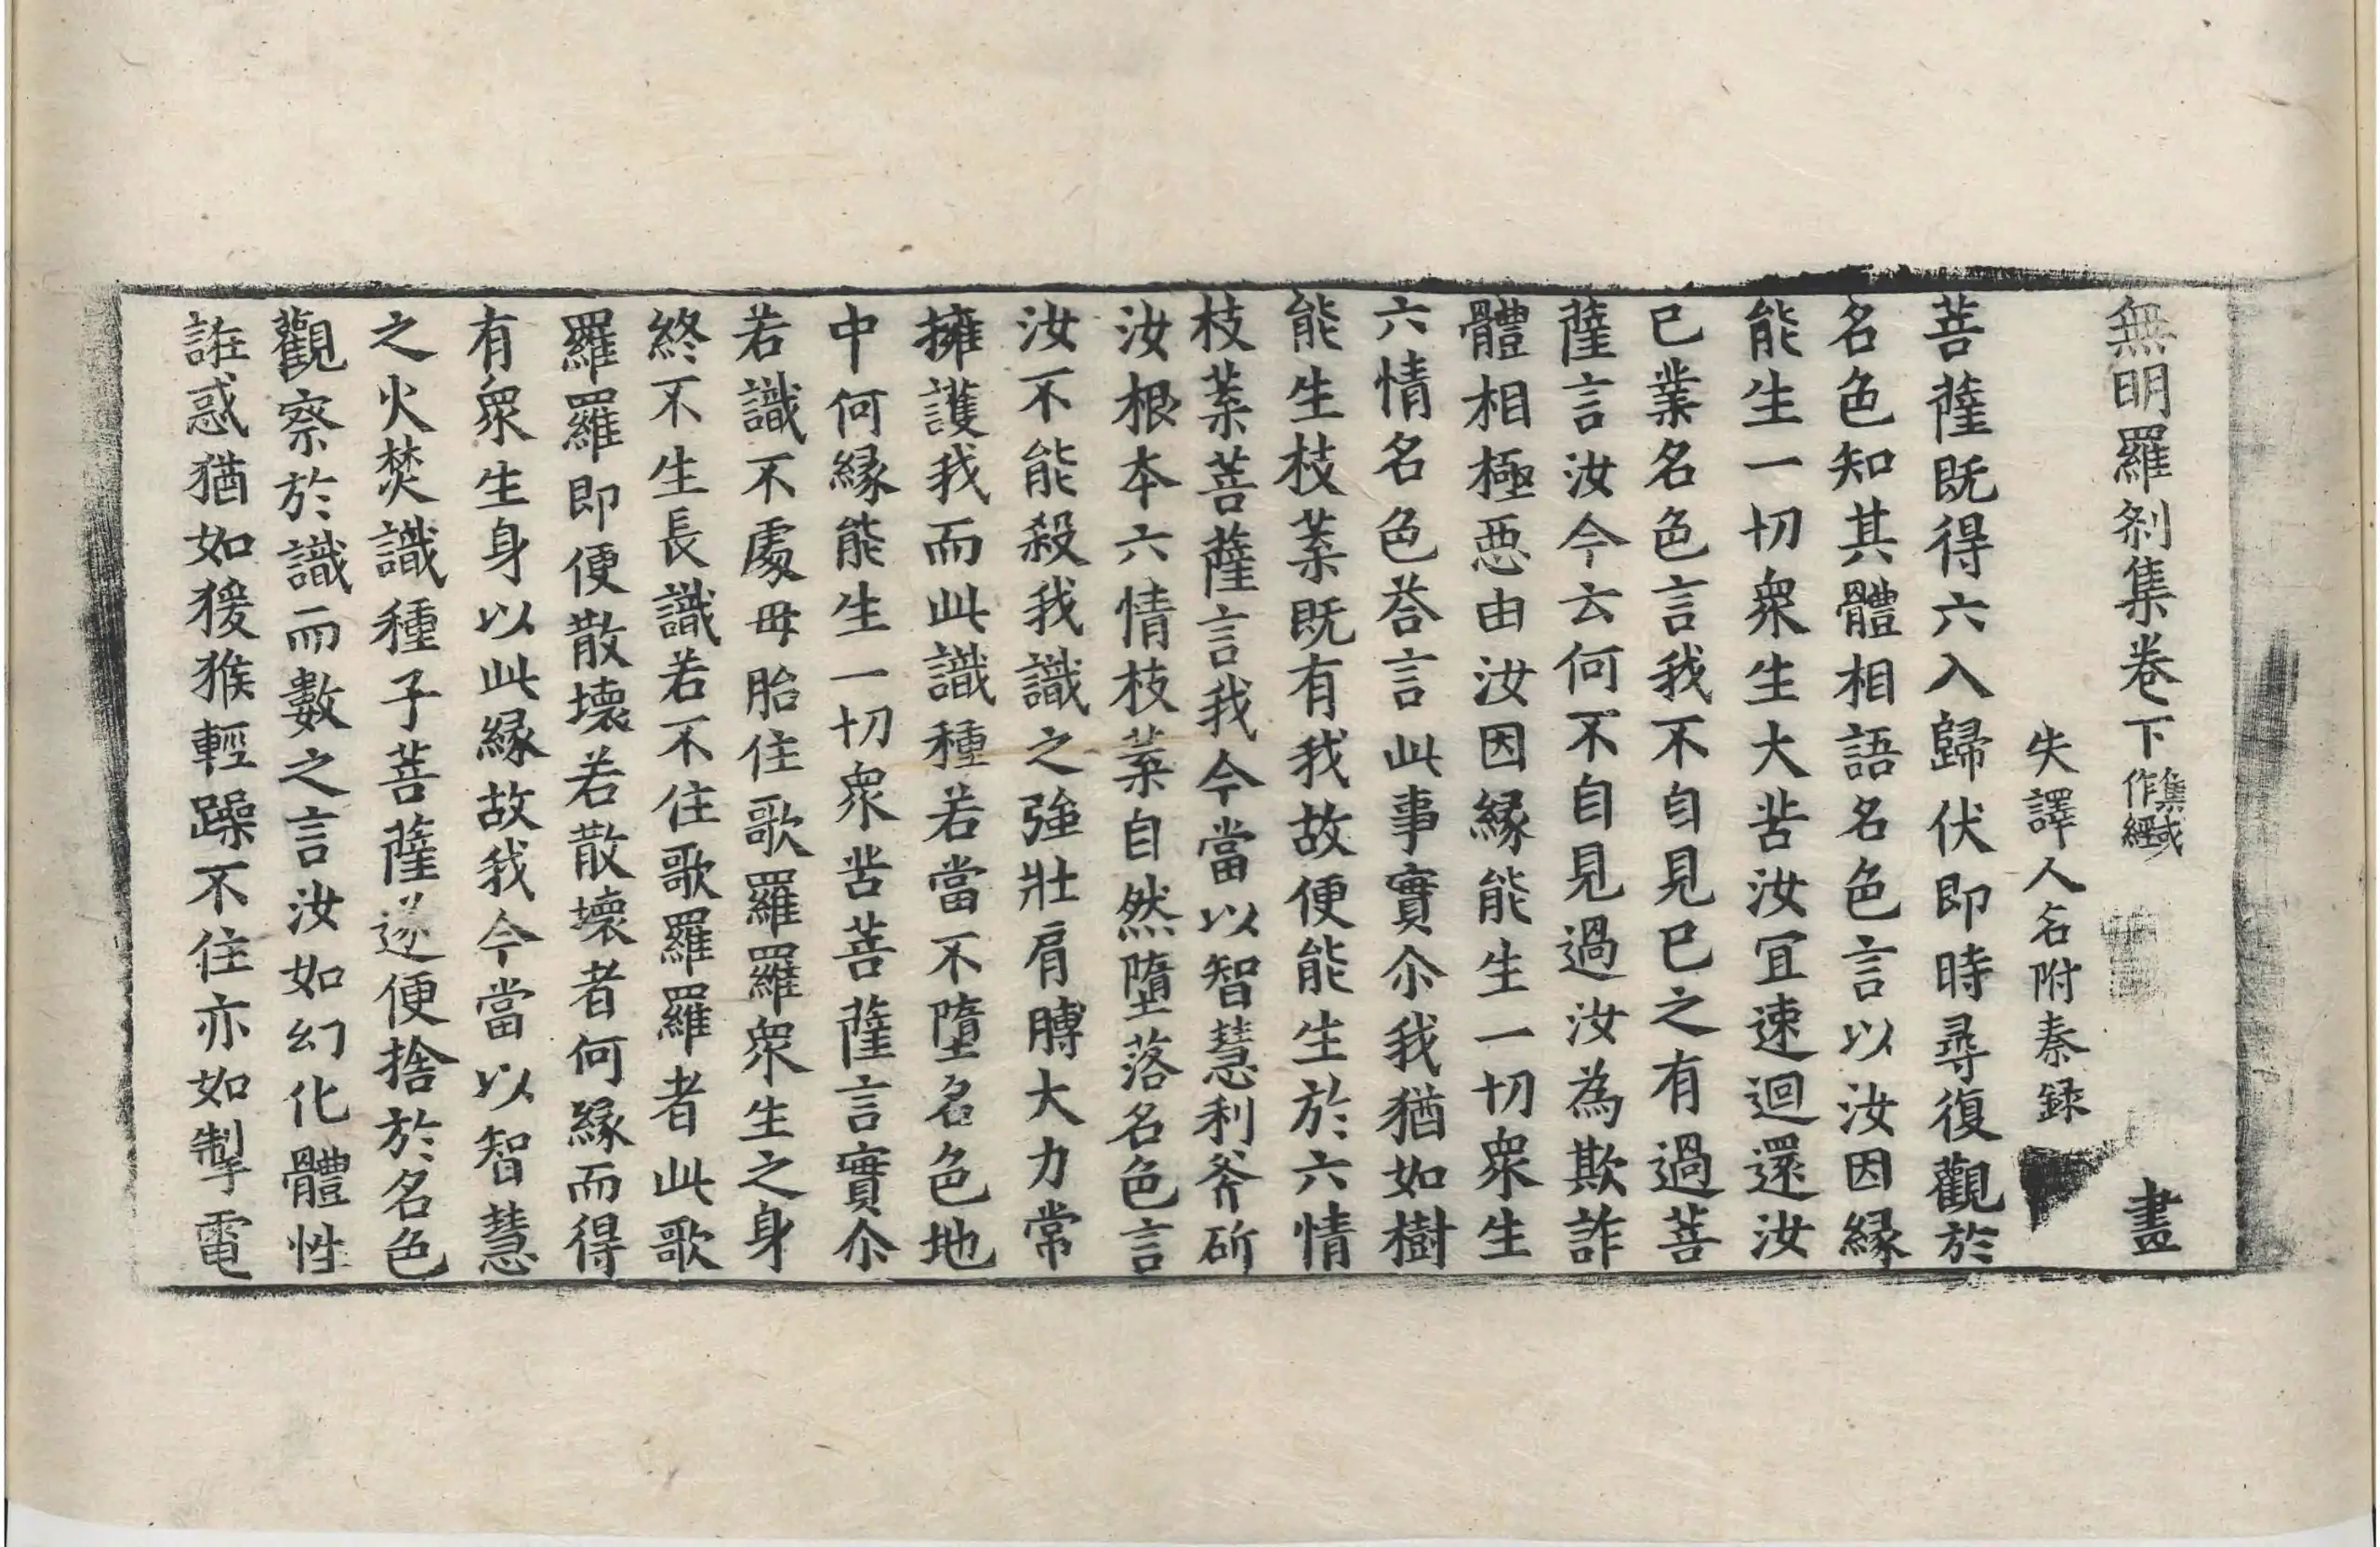 無明羅剎集卷下 集或作經 畫
失譯人名附秦録
菩薩既得六入歸伏即時尋復觀於
名色知其體相語名色言以汝因緣
能生一切衆生大苦汝冝速迴還汝
已業名色言我不自見已之有過菩
薩言汝今云何不自見過汝為欺詐
體相極惡由汝因緣能生一切衆生
六情名色荅言此事實尒我猶如樹
能生枝葉既有我故便能生於六情
枝葉菩薩言我今當以智慧利斧斫
汝根本六情枝葉自然墮落名色言
汝不能殺我識之強壯肩膊大力常
擁護我而此識種若當不墮名色地
中何緣能生一切衆苦菩薩言實尒
若識不處母胎住歌羅羅衆生之身
終不生長識若不住歌羅羅者此歌
羅羅即便散壞若散壞者何緣而得
有衆生身以此緣故我今當以智慧
之火焚識種子菩薩遂便捨於名色
觀察於識而數之言汝如幻化體性
誑惑猶如猨猴輕躁不住亦如掣電